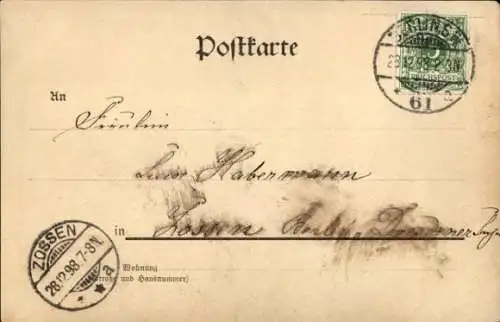 Postkarte
BERLIN S.W.
28.12.98. 2-3N
61 a
An
Fräulein
Habermann
in Zossen
ZOSSEN
28.12.98. 7-8N.
a
Wohnung
(Straße und Hausnummer)